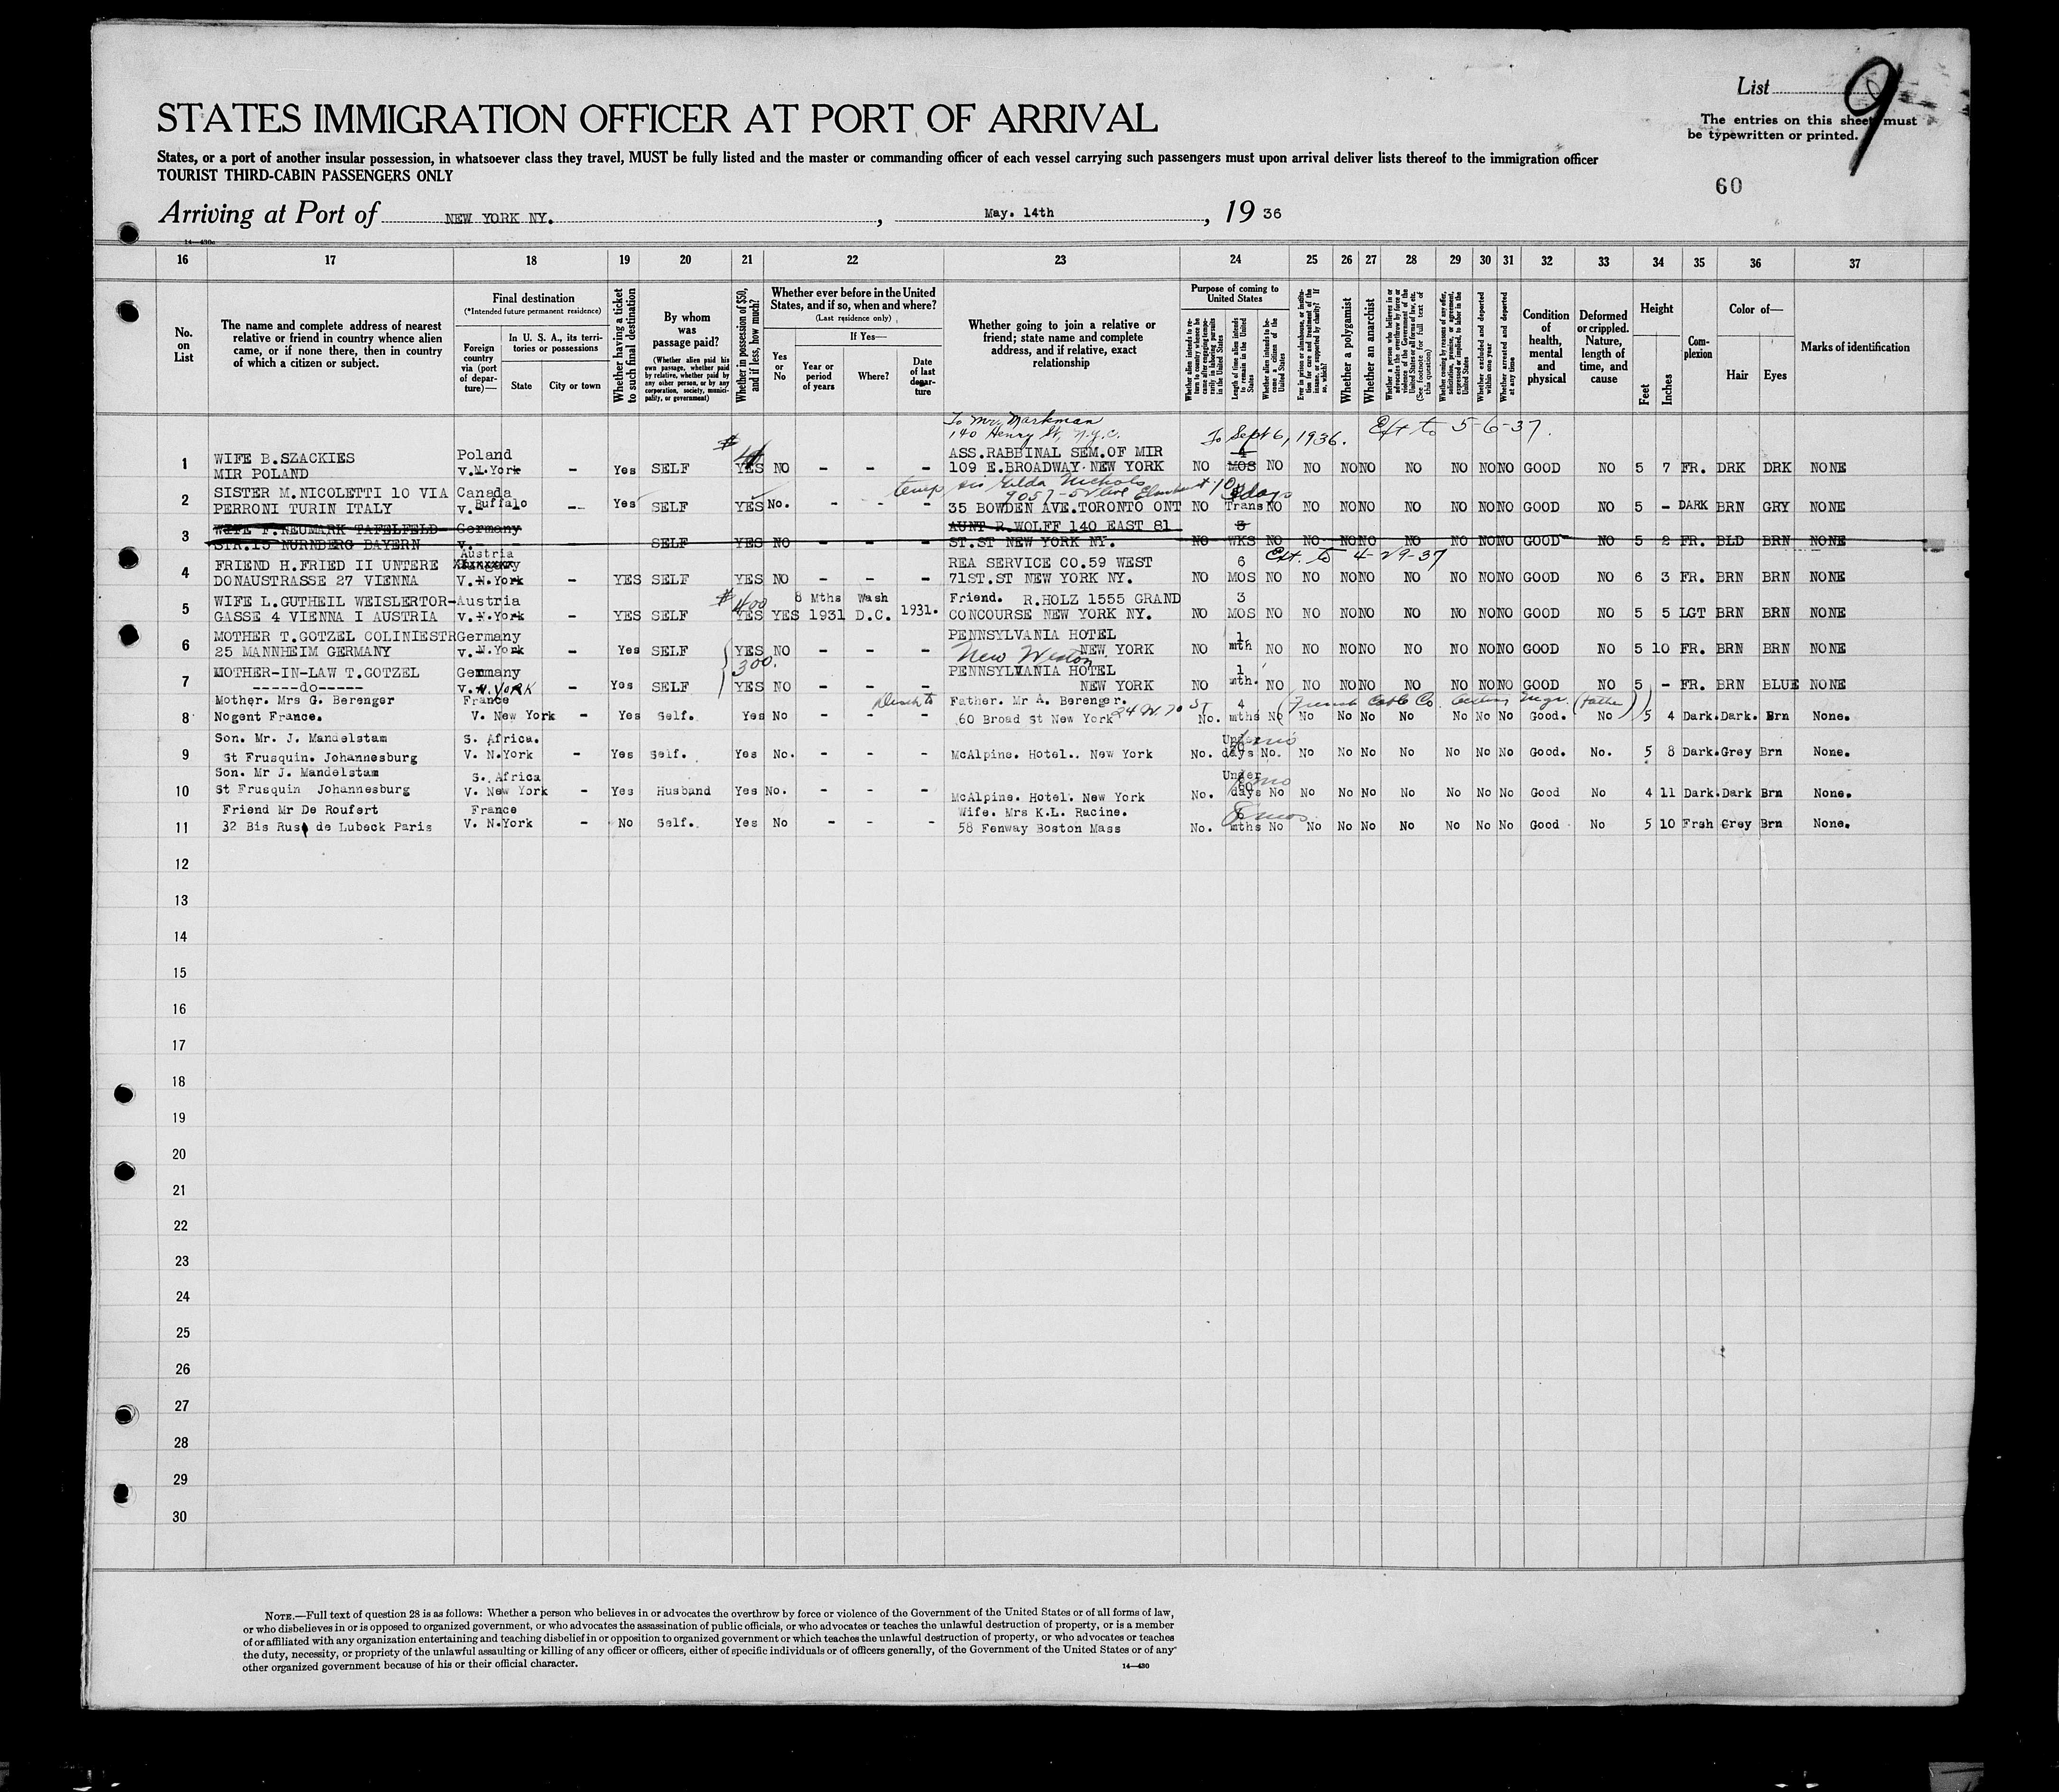 List 9
STATES IMMIGRATION OFFICER AT PORT OF ARRIVAL
The entries on this sheet must
be typewritten or printed.
States, or a port of another insular possession, in whatsoever class they travel, MUST be fully listed and the master or commanding officer of each vessel carrying such passengers must upon arrival deliver lists thereof to the immigration officer
TOURIST THIRD-CABIN PASSENGERS ONLY
60
Arriving at Port of NEW YORK NY. , May. 14th , 19 36
14—430a
16 17 18 19 20 21 22 23 24 25 26 27 28 29 30 31 32 33 34 35 36 37
No. on List
The name and complete address of nearest relative or friend in country whence alien came, or if none there, then in country of which a citizen or subject.
Final destination
(*Intended future permanent residence)
Foreign country via (port of departure)—
In U. S. A., its territories or possessions
State
City or town
Whether having a ticket to such final destination
By whom was passage paid?
(Whether alien paid his own passage, whether paid by relative, whether paid by any other person, or by any corporation, society, municipality, or government)
Whether in possession of $50, and if less, how much?
Whether ever before in the United States, and if so, when and where?
(Last residence only)
Yes or No
If Yes—
Year or period of years
Where?
Date of last departure
Whether going to join a relative or friend; state name and complete address, and if relative, exact relationship
Purpose of coming to United States
Whether alien intends to return to country whence he came after engaging temporarily in laboring pursuits in the United States
Length of time alien intends to remain in the United States
Whether alien intends to become a citizen of the United States
Ever in prison or almshouse, or institution for care and treatment of the insane, or supported by charity? If so, which?
Whether a polygamist
Whether an anarchist
Whether a person who believes in or advocates the overthrow by force or violence of the Government of the United States or all forms of law, etc. (See footnote for full text of this question)
Whether coming by reasons of any offer, solicitation, promise, or agreement, expressed or implied, to labor in the United States
Whether excluded and deported within one year
Whether arrested and deported at any time
Condition of health, mental and physical
Deformed or crippled. Nature, length of time, and cause
Height
Feet
Inches
Complexion
Color of—
Hair
Eyes
Marks of identification
To Mr. Markman
140 Henry St, N.Y.C.
To Sept 6, 1936. Ext to 5-6-37.
1 WIFE B.SZACKIES Poland ASS.RABBINAL SEM.OF MIR
MIR POLAND V.N.York - Yes SELF YES NO - - - 109 E.BROADWAY NEW YORK NO MOS NO NO NO NO NO NO NO NO GOOD NO 5 7 FR. DRK DRK NONE
temp sis Gilda Nichols
2 SISTER M.NICOLETTI 10 VIA Canada
PERRONI TURIN ITALY V. Buffalo -- Yes SELF YES No. - - - 35 BOWDEN AVE.TORONTO ONT NO Trans NO NO NO NO NO NO NO NO GOOD NO 5 - DARK BRN GRY NONE
3 WIFE F.NEUMARK TAFELFELD Germany AUNT R.WOLFF 140 EAST 81
STR.15 NURNBERG BAYERN V. - SELF YES NO - - - ST.ST NEW YORK NY. NO WKS NO NO NO NO NO NO NO NO GOOD NO 5 2 FR. BLD BRN NONE
Ext. to 4-29-37
4 FRIEND H.FRIED II UNTERE Austria REA SERVICE CO.59 WEST 6
DONAUSTRASSE 27 VIENNA V.N.York - YES SELF YES NO - - - 71ST.ST NEW YORK NY. NO MOS NO NO NO NO NO NO NO NO GOOD NO 6 3 FR. BRN BRN NONE
5 WIFE L.GUTHEIL WEISLERTOR- Austria $400 8 Mths Wash Friend. R.HOLZ 1555 GRAND 3
GASSE 4 VIENNA I AUSTRIA V.N.York - YES SELF YES YES 1931 D.C. 1931. CONCOURSE NEW YORK NY. NO MOS NO NO NO NO NO NO NO NO GOOD NO 5 5 LGT BRN BRN NONE
6 MOTHER T.GOTZEL COLINIESTR Germany PENNSYLVANIA HOTEL 1
25 MANNHEIM GERMANY V.N.York - Yes SELF YES NO - - - NEW YORK NO mth NO NO NO NO NO NO NO NO GOOD NO 5 10 FR. BRN BRN NONE
300. New Weston
7 MOTHER-IN-LAW T.GOTZEL Germany PENNSYLVANIA HOTEL 1
-----do----- V. N. YORK - Yes SELF YES NO - - - NEW YORK NO mth. NO NO NO NO NO NO NO NO GOOD NO 5 - FR. BRN BLUE NONE
8 Mother. Mrs G. Berenger France Father. Mr A. Berenger. 4 (French Cable Co. Mgr. (Father))
Nogent France. V. New York - Yes Self. Yes No - - - 60 Broad St New York 24 W. 70 ST No. mths No No No No No No No No Good. No 5 4 Dark. Dark. Brn None.
9 Son. Mr. J. Mandelstam S. Africa.
St Frusquin. Johannesburg V. N.York - Yes Self. Yes No. - - - McAlpine. Hotel.. New York No. days No. No No No No No No No Good. No. 5 8 Dark. Grey Brn None.
10 Son. Mr J. Mandelstam S. Africa Under
St Frusquin Johannesburg V. New York - Yes Husband Yes No. - - - McAlpine. Hotel. New York No. days No No No No No No No No Good No 4 11 Dark. Dark Brn None.
11 Friend Mr De Roufert France Wife. Mrs K.L. Racine.
32 Bis Rus de Lubeck Paris V. N.York - No Self. Yes No - - - 58 Fenway Boston Mass No. mths No No No No No No No No Good No 5 10 Frsh Grey Brn None.
12
13
14
15
16
17
18
19
20
21
22
23
24
25
26
27
28
29
30
NOTE.—Full text of question 28 is as follows: Whether a person who believes in or advocates the overthrow by force or violence of the Government of the United States or of all forms of law,
or who disbelieves in or is opposed to organized government, or who advocates the assassination of public officials, or who advocates or teaches the unlawful destruction of property, or is a member
of or affiliated with any organization entertaining and teaching disbelief in or opposition to organized government or which teaches the unlawful destruction of property, or who advocates or teaches
the duty, necessity, or propriety of the unlawful assaulting or killing of any officer or officers, either of specific individuals or of officers generally, of the Government of the United States or of any
other organized government because of his or their official character.
14—430